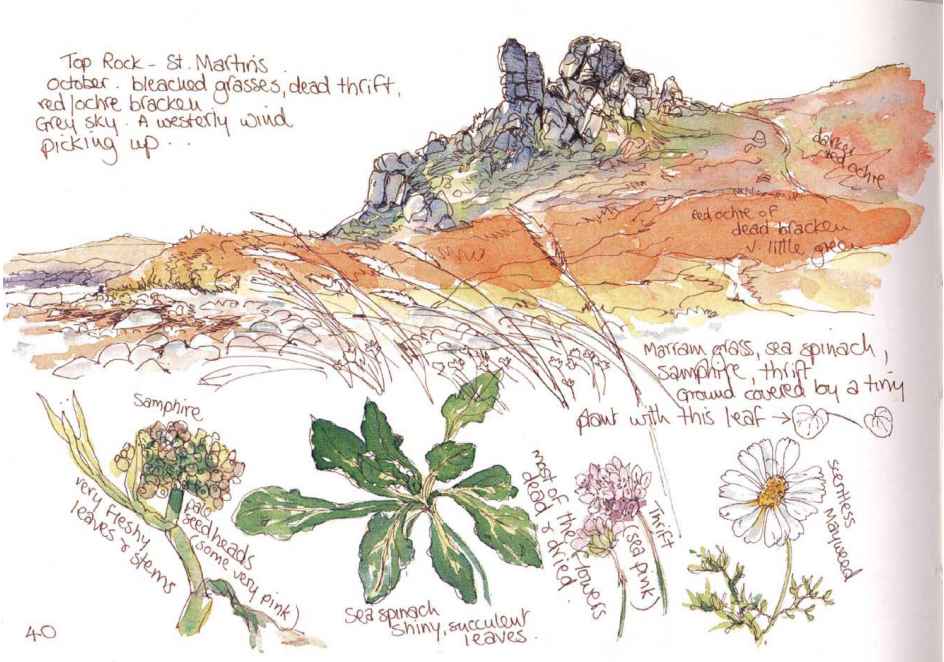 Top Rock - St. Martins.
October. bleached grasses, dead thrift,
red/ochre bracken.
Grey sky. A westerly wind
picking up...
darker
red ochre
red ochre of
dead bracken
v. little green
Marram grass, sea spinach,
Samphire, thrift
Ground covered by a tiny
plant with this leaf →
Samphire
very fleshy
leaves & stems
pale
seedheads
(some very pink)
Sea spinach
Shiny, succulent
leaves.
most of the flowers
dead & dried.
Thrift
(sea pink)
scentless
Mayweed
40